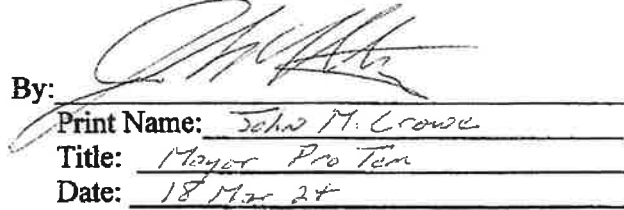 By:
Print Name: John M. Crowe
Title: Mayor Pro Tem
Date: 18 Mar 24